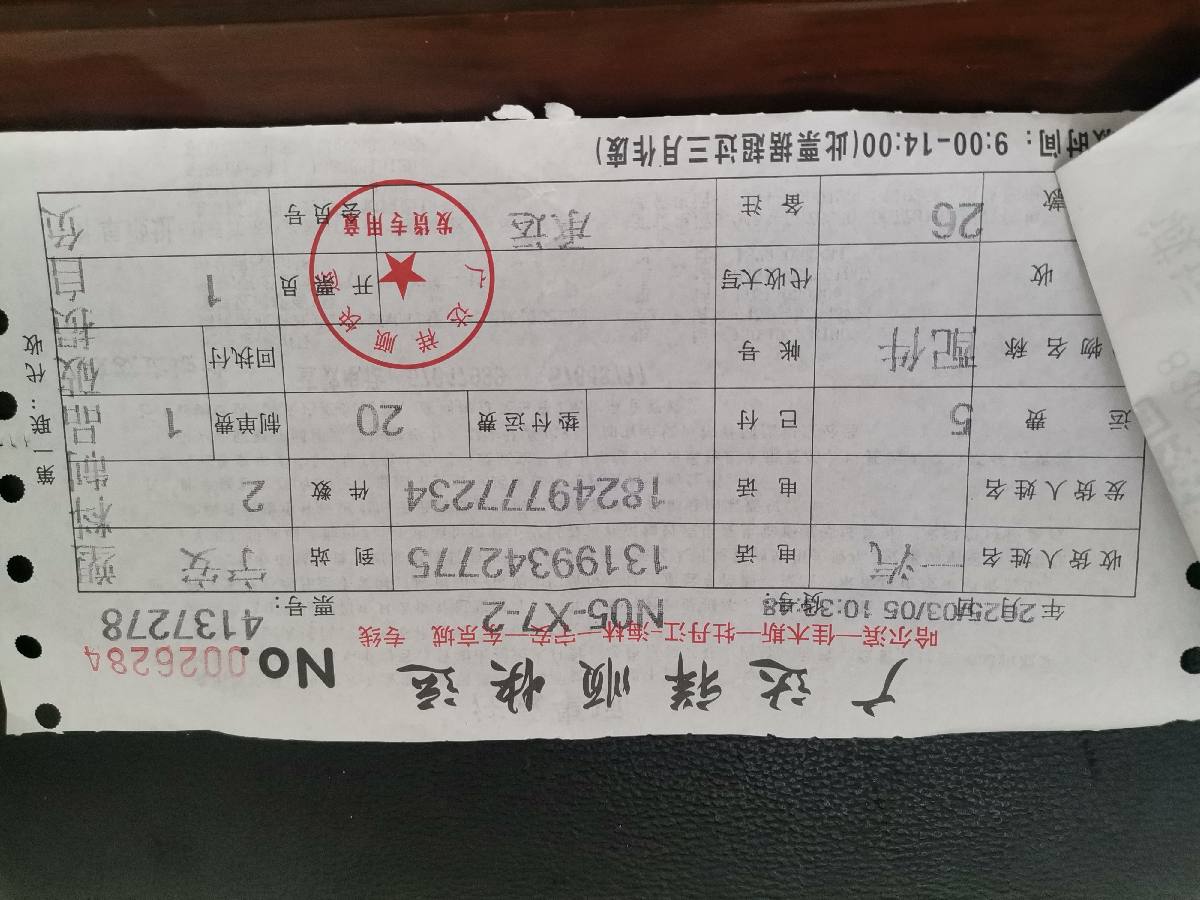 广达祥顺快运 No. 0026284
哈尔滨—佳木斯—牡丹江—海林—宁安—东京城 专线 4137278
2025/03/05 10:36:48 年 月 日 货号: N05-X7-2 票号:
收货人姓名 汽 电话 13199342775 到站 宁安
发货人姓名 电话 18249777234 件数 2
运费 5 已付 垫付运费 20 制单费 1
物名称 配件 帐号 回执付
收 代收大写 开票员 1
款 26 备注 承运 会员号
塑料制品破损自负
时间:9:00-14:00(此票据超过三月作废)
第一联:代收
广达祥顺快
发货专用章